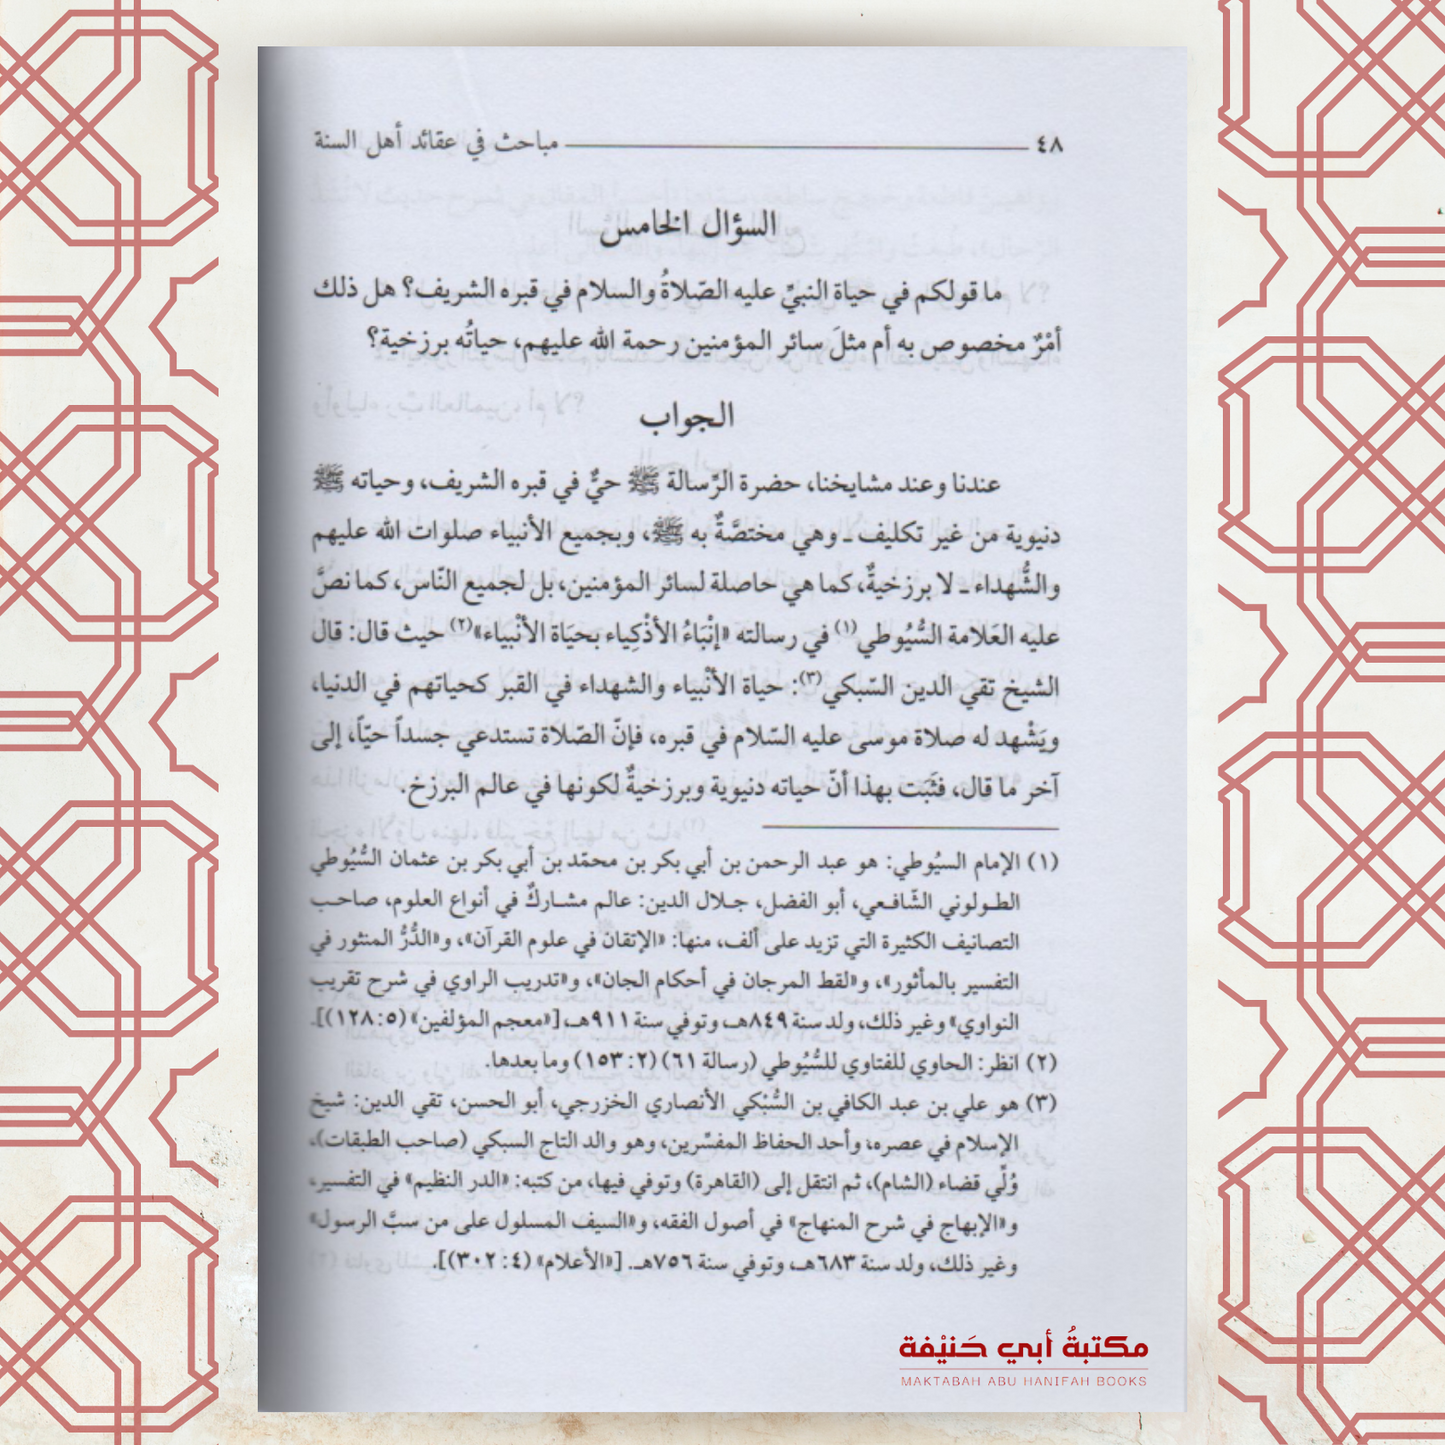 ٤٨ مباحث في عقائد أهل السنة
السؤال الخامس
ما قولكم في حياة النبيِّ عليه الصّلاةُ والسلام في قبره الشريف؟ هل ذلك
أمْرٌ مخصوص به أم مثلَ سائر المؤمنين رحمة الله عليهم، حياتُه برزخية؟
الجواب
عندنا وعند مشايخنا، حضرة الرّسالة ﷺ حيٌّ في قبره الشريف، وحياته ﷺ
دنيوية من غير تكليف ـ وهي مختصَّةٌ به ﷺ، وبجميع الأنبياء صلوات الله عليهم
والشُّهداء ـ لا برزخيةٌ، كما هي حاصلة لسائر المؤمنين، بل لجميع النّاس، كما نصَّ
عليه العَلامة السُّيُوطي(١) في رسالته «إنْبَاءُ الأذْكِياء بحيَاة الأنْبياء»(٢) حيث قال: قال
الشيخ تقي الدين السّبكي(٣): حياة الأنْبياء والشهداء في القبر كحياتهم في الدنيا،
ويَشْهد له صلاة موسى عليه السّلام في قبره، فإنّ الصّلاة تستدعي جسداً حيّاً، إلى
آخر ما قال، فثَبَت بهذا أنّ حياته دنيوية وبرزخيةٌ لكونها في عالم البرزخ.
(١) الإمام السيُوطي: هو عبد الرحمن بن أبي بكر بن محمّد بن أبي بكر بن عثمان السُّيُوطي
الطولوني الشّافعي، أبو الفضل، جلال الدين: عالم مشاركٌ في أنواع العلوم، صاحب
التصانيف الكثيرة التي تزيد على ألف، منها: «الإتقان في علوم القرآن»، و«الدُّرُّ المنثور في
التفسير بالمأثور»، و«لقط المرجان في أحكام الجان»، و«تدريب الراوي في شرح تقريب
النواوي» وغير ذلك، ولد سنة ٨٤٩هـ، وتوفي سنة ٩١١هـ، [«معجم المؤلفين» (٥: ١٢٨)].
(٢) انظر: الحاوي للفتاوي للسُّيُوطي (رسالة ٦١) (٢: ١٥٣) وما بعدها.
(٣) هو علي بن عبد الكافي بن السُّبْكي الأنصاري الخزرجي، أبو الحسن، تقي الدين: شيخ
الإسلام في عصره، وأحد الحفاظ المفسّرين، وهو والد التاج السبكي (صاحب الطبقات)،
وُلّي قضاء (الشام)، ثم انتقل إلى (القاهرة) وتوفي فيها، من كتبه: «الدر النظيم» في التفسير،
و«الإبهاج في شرح المنهاج» في أصول الفقه، و«السيف المسلول على من سبَّ الرسول»
وغير ذلك، ولد سنة ٦٨٣هـ، وتوفي سنة ٧٥٦هـ. [«الأعلام» (٤: ٣٠٢)].
مكتبةُ أبي حَنيْفة
MAKTABAH ABU HANIFAH BOOKS